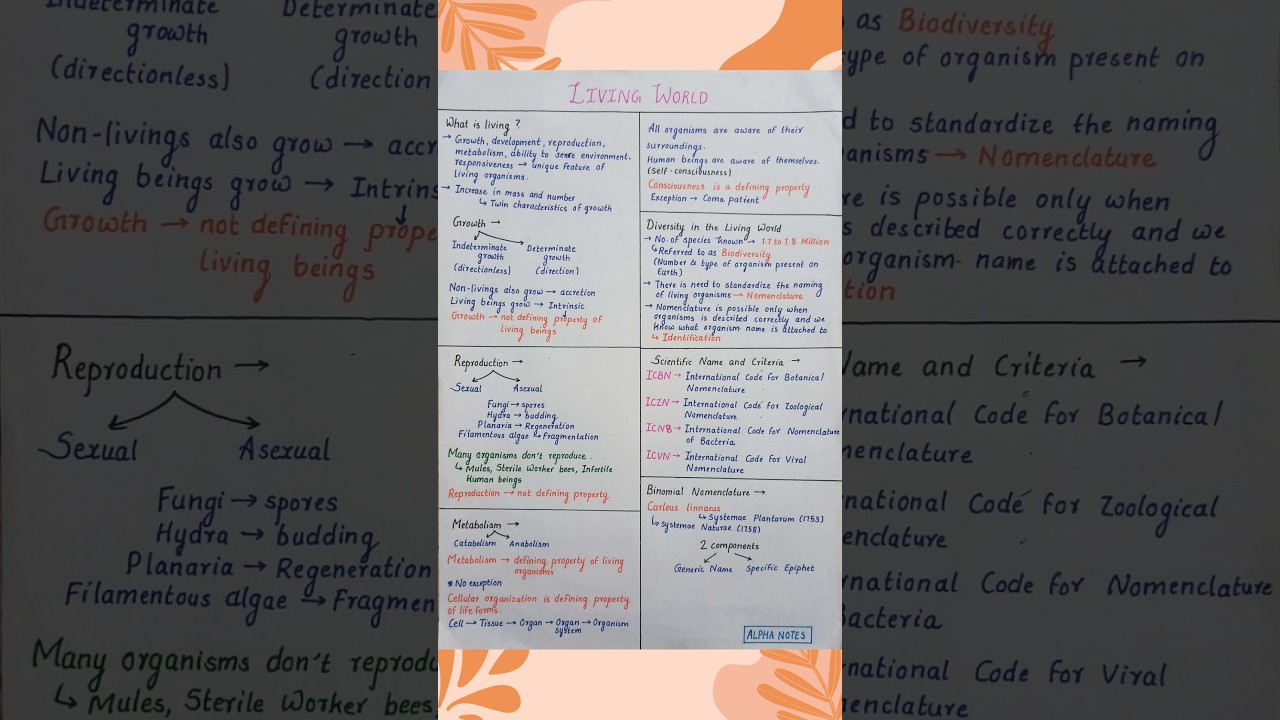 LIVING WORLD
What is living ?
→ Growth, development, reproduction,
metabolism, ability to sense environment.
responsiveness → unique feature of
living organisms.
→ Increase in mass and number
↳ Twin characteristics of growth
Growth →
Indeterminate growth
(directionless)
Determinate growth
(direction)
Non-livings also grow → accretion
Living beings grow → Intrinsic
Growth → not defining property of
living beings
Reproduction →
Sexual Asexual
Fungi → spores
Hydra → budding
Planaria → Regeneration
Filamentous algae → Fragmentation
Many organisms don't reproduce.
↳ Mules, Sterile Worker bees, Infertile
Human beings
Reproduction → not defining property
Metabolism →
Catabolism Anabolism
Metabolism → defining property of living
organisms
* No exception
Cellular organization is defining property
of life forms.
Cell → Tissue → Organ → Organ system → Organism
All organisms are aware of their
surroundings.
Human beings are aware of themselves.
(Self-consciousness)
Consciousness is a defining property.
Exception → Coma patient
Diversity in the Living World
→ No. of species known → 1.7 to 1.8 Million
↳ Referred to as Biodiversity
(Number & type of organism present on
Earth)
→ There is need to standardize the naming
of living organisms → Nomenclature
→ Nomenclature is possible only when
organisms is described correctly and we
know what organism name is attached to
↳ Identification
Scientific Name and Criteria →
ICBN → International Code for Botanical
Nomenclature
ICZN → International Code for Zoological
Nomenclature
ICNB → International Code for Nomenclature
of Bacteria
ICVN → International Code for Viral
Nomenclature
Binomial Nomenclature →
Carlous linnaeus
↳ Systemae Plantarum (1753)
↳ Systemae Naturae (1758)
2 components
Generic Name Specific Epiphet
ALPHA NOTES
Indeterminate
growth
(directionless)
Determinate
growth
(direction
Non-livings also grow → accr
Living beings grow → Intrins
Growth → not defining prope
living beings
Reproduction →
Sexual Asexual
Fungi → spores
Hydra → budding
Planaria → Regeneration
Filamentous algae → Fragmen
Many organisms don't reprodu
↳ Mules, Sterile Worker bees
as Biodiversity
ype of organism present on
d to standardize the naming
anisms → Nomenclature
re is possible only when
s described correctly and we
organism name is attached to
tion
ame and Criteria →
national Code for Botanical
enclature
national Code for Zoological
enclature
national Code for Nomenclature
Bacteria
national Code for Viral
enclature